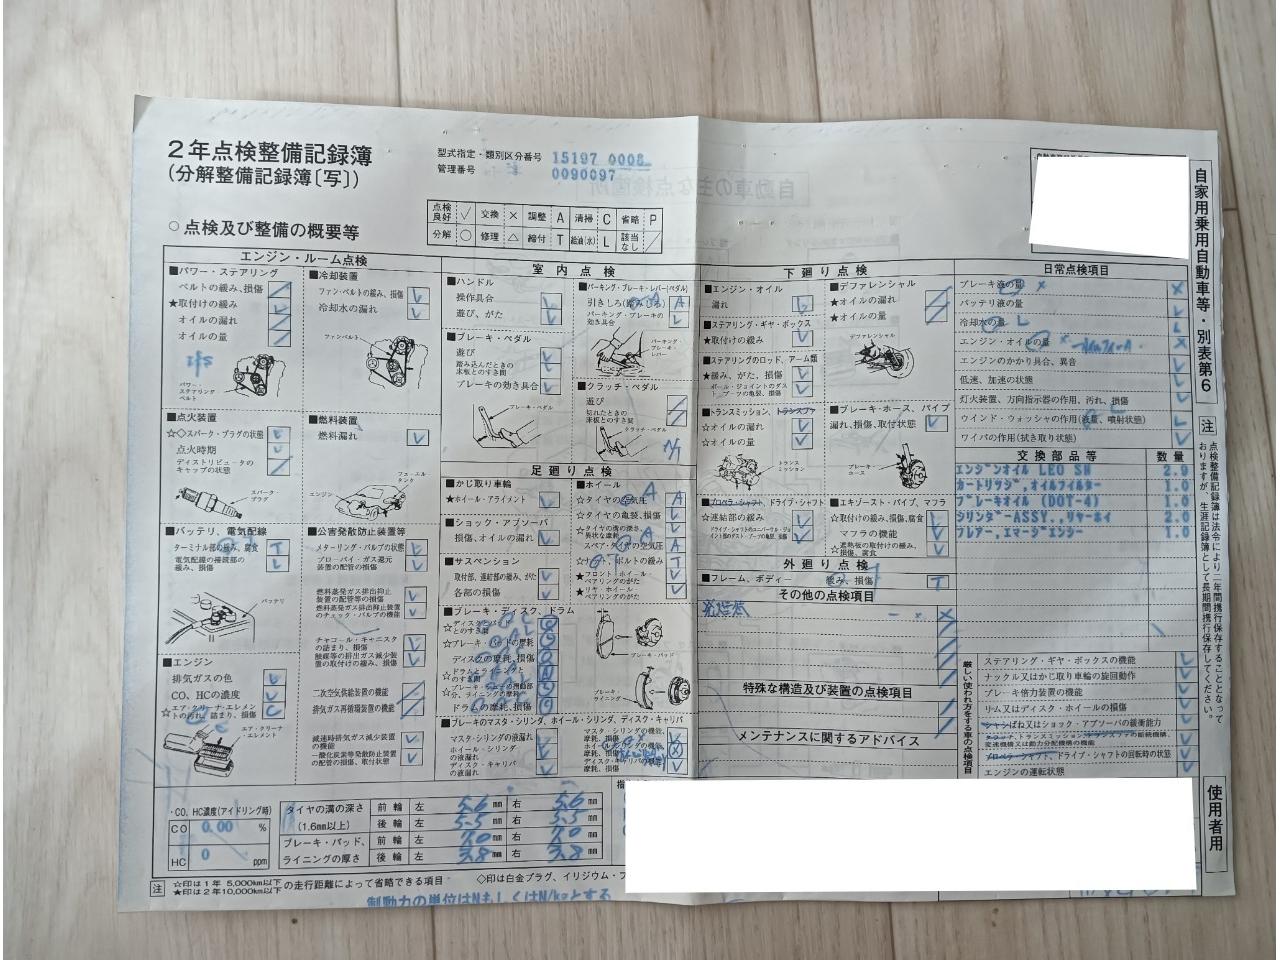 2年点検整備記録簿
(分解整備記録簿〔写〕)
型式指定・類別区分番号 15197 0008
管理番号 0090097
○点検及び整備の概要等
点検良好 ✓ 交換 × 調整 A 清掃 C 省略 P
分解 ○ 修理 △ 締付 T 給油(水) L 該当なし ／
エンジン・ルーム点検
■パワー・ステアリング
ベルトの緩み、損傷
★取付けの緩み
オイルの漏れ
オイルの量
パワー・ステアリングベルト
■冷却装置
ファン・ベルトの緩み、損傷
冷却水の漏れ
ファンベルト
■点火装置
☆◇スパーク・プラグの状態
点火時期
ディストリビュータのキャップの状態
スパーク・プラグ
■燃料装置
燃料漏れ
フューエルタンク
エンジン
■バッテリ、電気配線
ターミナル部の緩み、腐食
電気配線の接続部の緩み、損傷
バッテリ
■公害発散防止装置等
メターリング・バルブの状態
ブローバイ・ガス還元装置の配管の損傷
燃料蒸発ガス排出抑止装置の配管等の損傷
燃料蒸発ガス排出抑止装置のチェック・バルブの機能
チャコール・キャニスタの詰まり、損傷
触媒等の排出ガス減少装置の取付けの緩み、損傷
二次空気供給装置の機能
排気ガス再循環装置の機能
減速時排気ガス減少装置の機能
一酸化炭素等発散防止装置の配管の損傷、取付状態
■エンジン
排気ガスの色
CO、HCの濃度
☆エア・クリーナ・エレメントの汚れ、詰まり、損傷
エア・クリーナ・エレメント
室内点検
■ハンドル
操作具合
遊び、がた
■ブレーキ・ペダル
遊び
踏み込んだときの床板とのすき間
ブレーキの効き具合
ブレーキ・ペダル
■パーキング・ブレーキ・レバー(ペダル)
引きしろ(踏みしろ) A
パーキング・ブレーキの効き具合
パーキング・ブレーキ・レバー
■クラッチ・ペダル
遊び
切れたときの床板とのすき間
クラッチ・ペダル
足廻り点検
■かじ取り車輪
★ホイール・アライメント
■ショック・アブソーバ
損傷、オイルの漏れ
■サスペンション
取付部、連結部の緩み、がた
各部の損傷
■ホイール
☆タイヤの空気圧 A
☆タイヤの亀裂、損傷
☆タイヤの溝の深さ、異状な摩耗
スペア・タイヤの空気圧 A
☆ナット、ボルトの緩み T
★フロント・ホイール・ベアリングのがた
★リヤ・ホイール・ベアリングのがた
■ブレーキ・ディスク、ドラム
☆ディスクとパッドとのすき間
☆ブレーキ・パッドの摩耗
ディスクの摩耗、損傷
☆ドラムとライニングとのすき間
☆ブレーキ・シューの摺動部分、ライニングの摩耗
ドラムの摩耗、損傷
ブレーキ・パッド
ブレーキ・ライニング
■ブレーキのマスタ・シリンダ、ホイール・シリンダ、ディスク・キャリパ
マスタ・シリンダの液漏れ
ホイール・シリンダの液漏れ
ディスク・キャリパの液漏れ
マスタ・シリンダの機能、摩耗、損傷
ホイール・シリンダの機能、摩耗、損傷
ディスク・キャリパの機能、摩耗、損傷
下廻り点検
■エンジン・オイル
漏れ
■ステアリング・ギヤ・ボックス
★取付けの緩み
■ステアリングのロッド、アーム類
★緩み、がた、損傷
ボール・ジョイントのダスト・ブーツの亀裂、損傷
■トランスミッション、トランスファ
☆オイルの漏れ
☆オイルの量
トランスミッション
■プロペラ・シャフト、ドライブ・シャフト
☆連結部の緩み
ドライブ・シャフトのユニバーサル・ジョイント部のダスト・ブーツの亀裂、損傷
■デファレンシャル
★オイルの漏れ
★オイルの量
デファレンシャル
■ブレーキ・ホース、パイプ
漏れ、損傷、取付状態
ブレーキ・ホース
■エキゾースト・パイプ、マフラ
☆取付けの緩み、損傷、腐食
マフラの機能
☆遮熱板の取付けの緩み、損傷、腐食
外廻り点検
■フレーム、ボディー 緩み、損傷 T
その他の点検項目
発煙筒 ×
特殊な構造及び装置の点検項目
メンテナンスに関するアドバイス
日常点検項目
ブレーキ液の量 ×
バッテリ液の量
冷却水の量 L
エンジン・オイルの量 ×
エンジンのかかり具合、異音
低速、加速の状態
灯火装置、方向指示器の作用、汚れ、損傷
ウインド・ウォッシャの作用(液量、噴射状態) L
ワイパの作用(拭き取り状態)
交換部品等 数量
エンジンオイル LEO SN 2.9
カートリッジ,オイルフイルター 1.0
ブレーキオイル (DOT-4) 1.0
シリンダーASSY.,リヤーホイ 2.0
フレアー,エマージエンシー 1.0
厳しい使われ方をする車の点検項目
ステアリング・ギヤ・ボックスの機能
ナックル又はかじ取り車輪の旋回動作
ブレーキ倍力装置の機能
リム又はディスク・ホイールの損傷
シャシばね又はショック・アブソーバの緩衝能力
プロペラ・シャフト、ドライブ・シャフトの回転時の状態
エンジンの運転状態
自家用乗用自動車等・別表第6
注 点検整備記録簿は法令により二年間携行保存することとなっておりますが、生涯記録簿として長期間携行保存してください。
使用者用
・CO、HC濃度(アイドリング時)
CO 0.00 %
HC 0 ppm
タイヤの溝の深さ (1.6mm以上)
前輪 左 5.6 mm 右 5.6 mm
後輪 左 5.5 mm 右 5.5 mm
ブレーキ・パッド、ライニングの厚さ
前輪 左 7.0 mm 右 7.0 mm
後輪 左 3.8 mm 右 3.8 mm
注 ☆印は1年 5,000km以下 ★印は2年10,000km以下 の走行距離によって省略できる項目 ◇印は白金プラグ、イリジウム・プ
制動力の単位はNもしくはN/kgとする